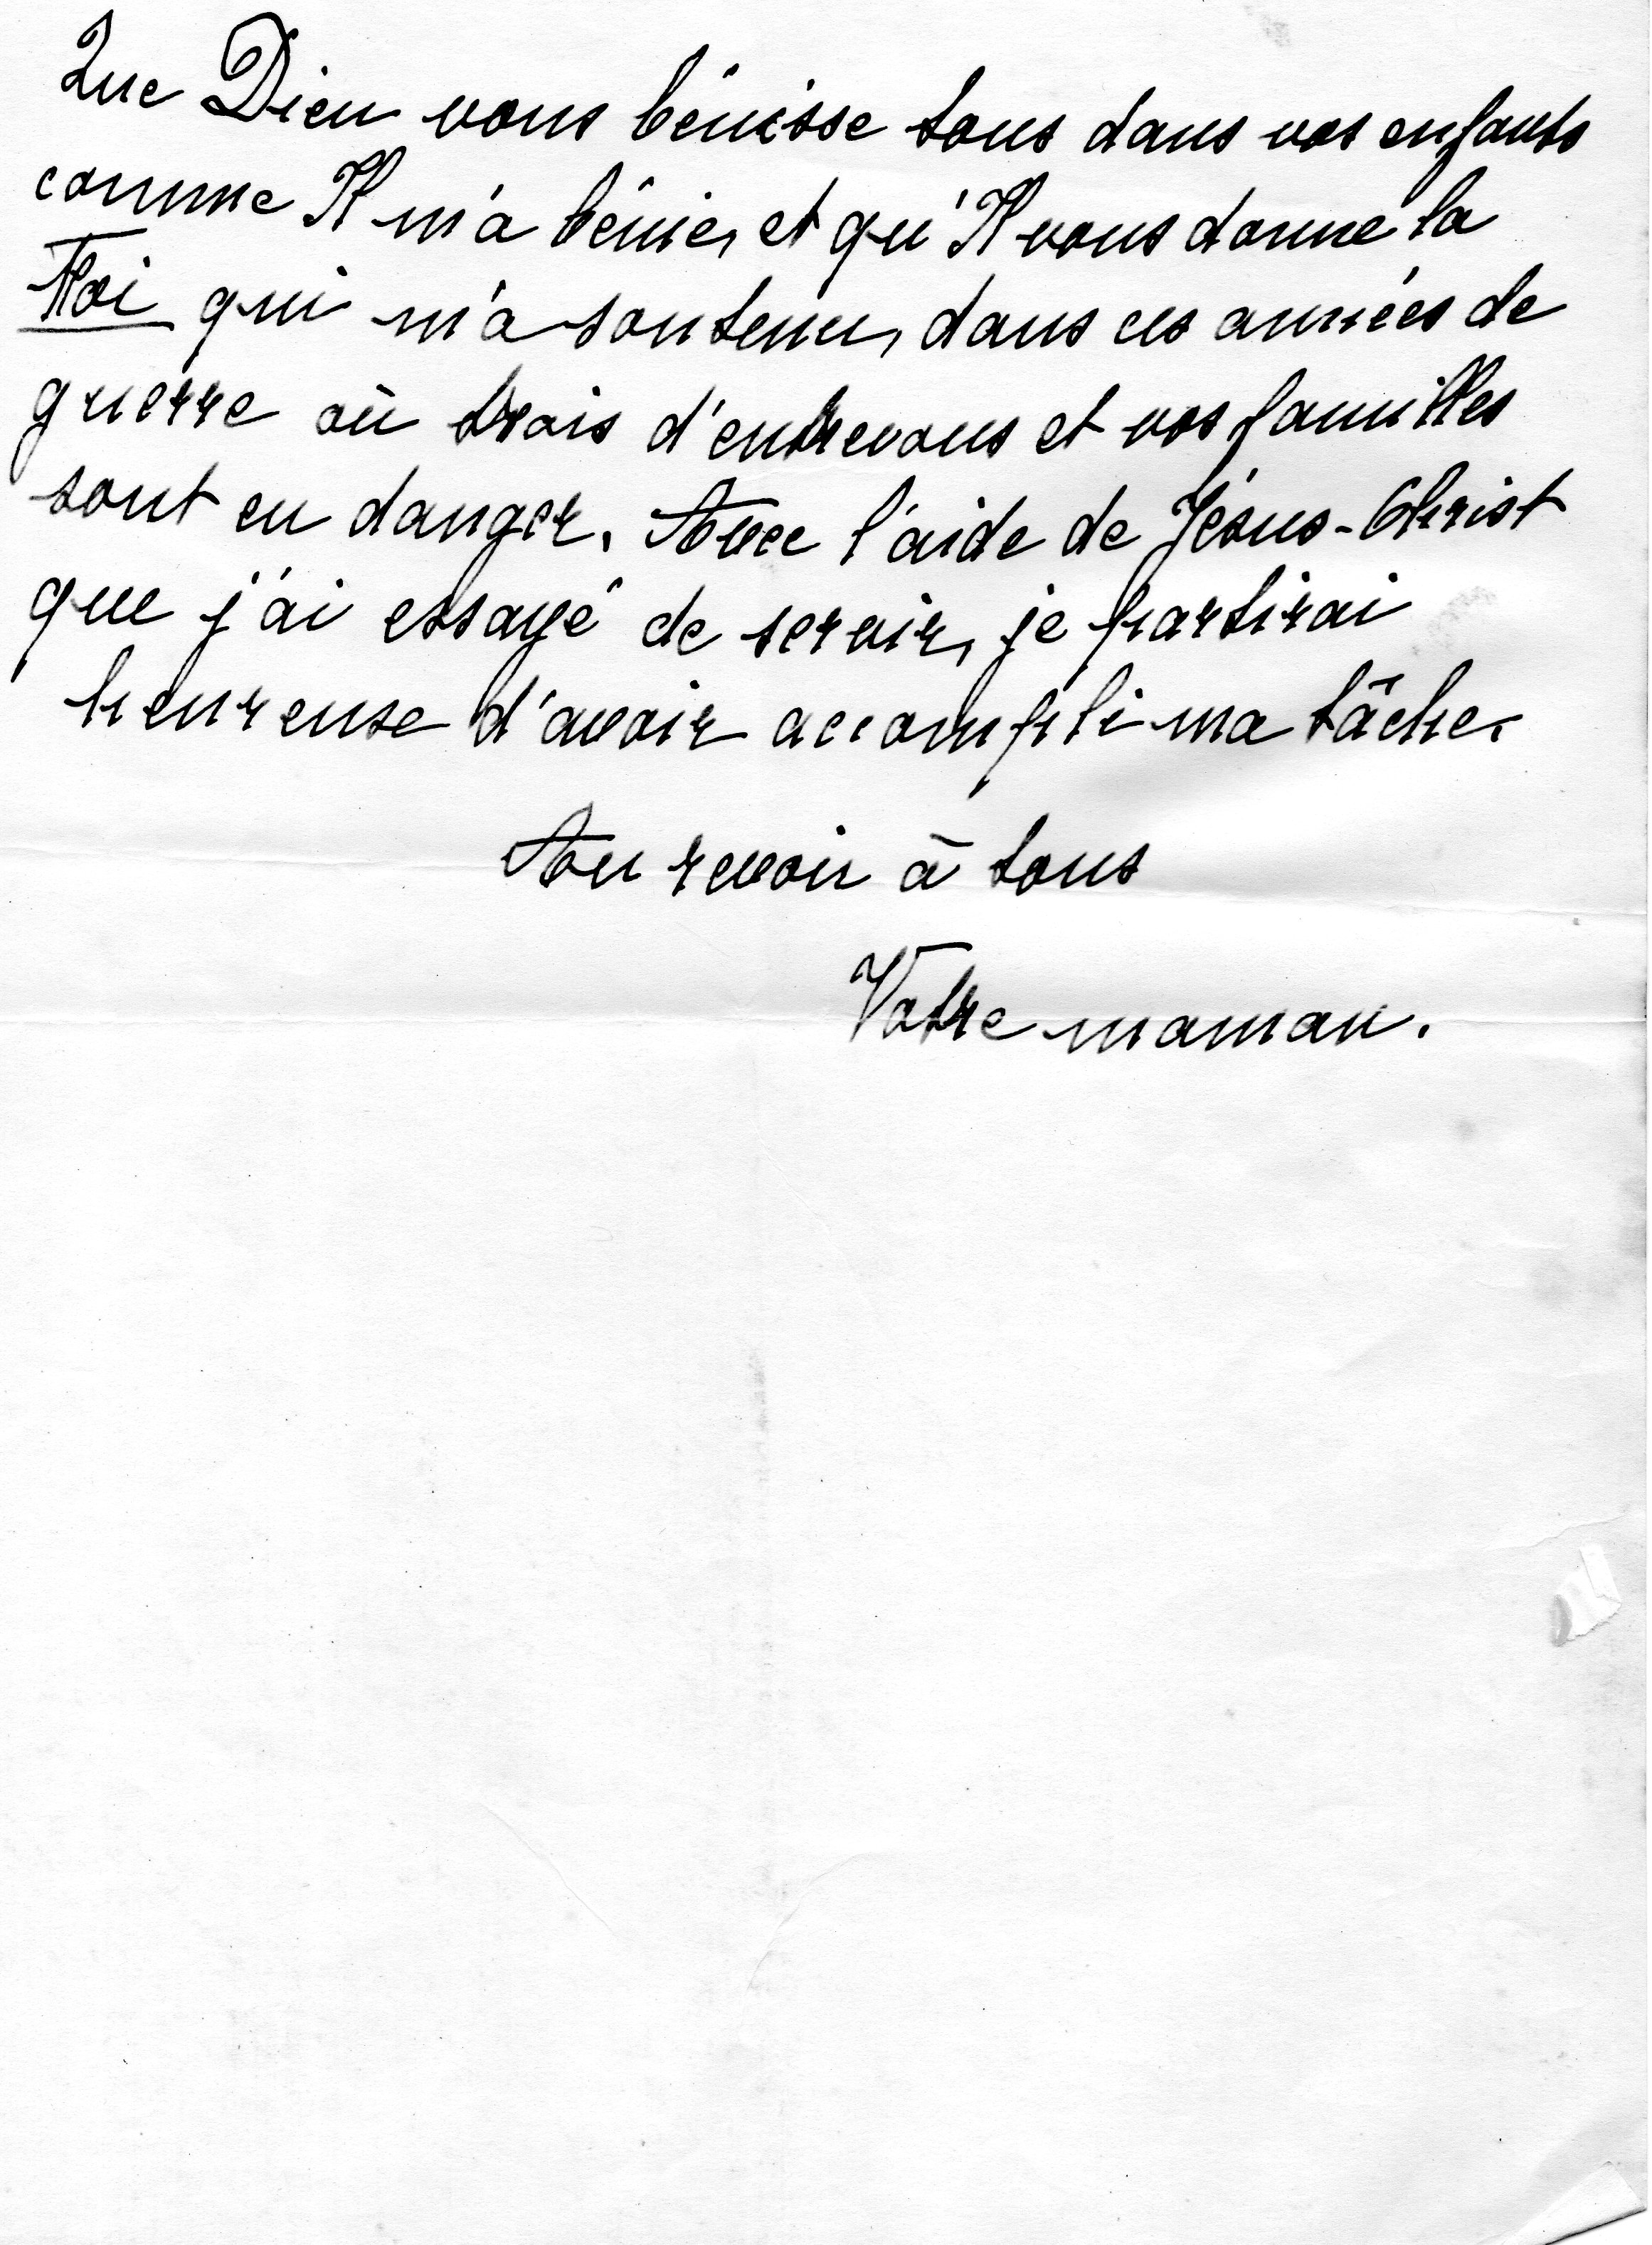 Que Dieu vous bénisse tous dans vos enfants
comme Il m'a bénie, et qu'Il vous donne la
Foi qui m'a soutenu, dans ces années de
guerre où trois d'entrevous et vos familles
sont en danger. Avec l'aide de Jésus-Christ
que j'ai essayé de servir, je partirai
heureuse d'avoir accompli ma tâche.
Au revoir à tous
Votre maman.